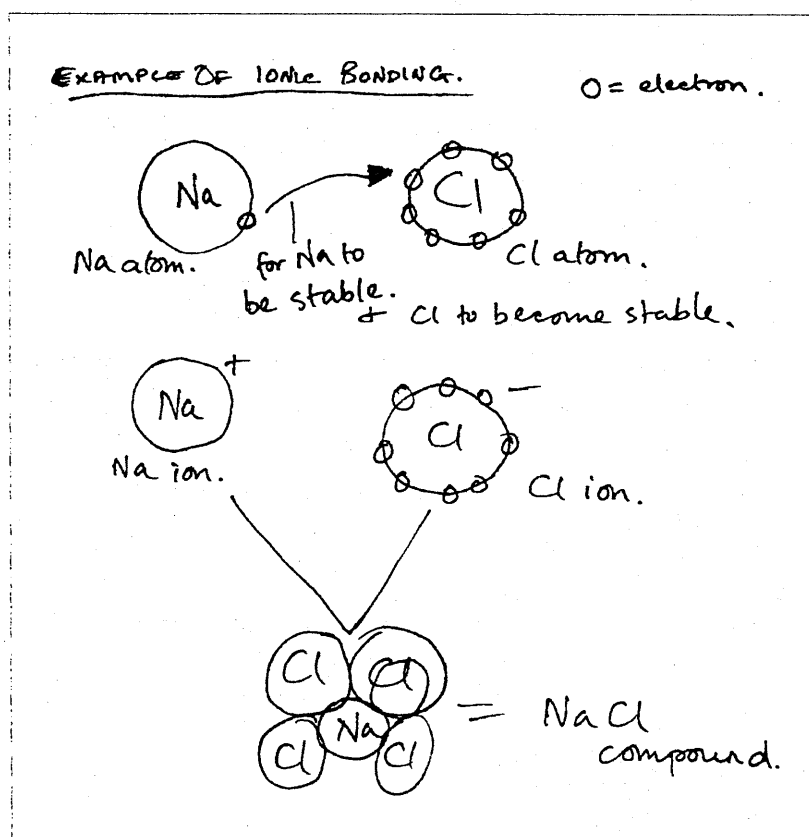 EXAMPLE OF IONIC BONDING.
O = electron.
Na
Cl
Na atom.
for Na to
be stable.
Cl atom.
+ Cl to become stable.
Na +
Cl –
Na ion.
Cl ion.
Cl Cl
Na
Cl Cl
= NaCl
compound.